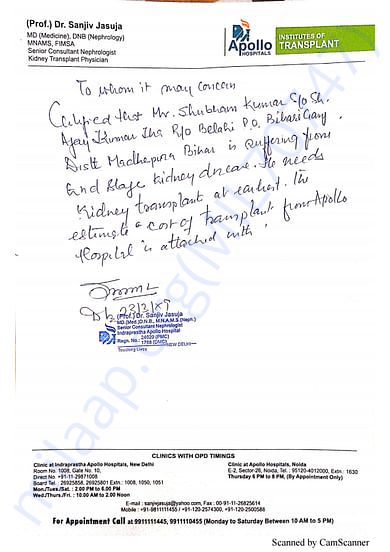 (Prof.) Dr. Sanjiv Jasuja
MD (Medicine), DNB (Nephrology)
MNAMS, FIMSA
Senior Consultant Nephrologist
Kidney Transplant Physician
Apollo
HOSPITALS
INSTITUTES OF
TRANSPLANT
To whom it may concern
Certified that Mr. Shubham Kumar S/o Sh.
Ajay Kumar Jha R/o Belahi P.O. Bihari Ganj
Distt Madhepura Bihar is suffering from
End Stage kidney disease. He needs
Kidney transplant at earliest. The
estimate cost of transplant from Apollo
Hospital is attached with
(Prof.) Dr. Sanjiv Jasuja
MD.(Med.)D.N.B., M.N.A.M.S.(Neph.)
Senior Consultant Nephrologist
Indraprastha Apollo Hospital
Regn. No.: 24020 (PMC)
1788 (DMC)
NEW DELHI
Touching Lives
milaap.org
CLINICS WITH OPD TIMINGS
Clinic at Indraprastha Apollo Hospitals, New Delhi
Room No. 1008, Gate No. 10,
Direct No. +91-11-29871008
Board Tel.: 26925858, 26925801 Extn.: 1008, 1050, 1051
Mon./Tues./Sat. : 2.00 PM to 6.00 PM
Wed./Thurs./Fri. : 10.00 AM to 2.00 Noon
Clinic at Apollo Hospitals, Noida
E-2, Sector-26, Noida, Tel.: 95120-4012000, Extn.: 1630
Thursday 6 PM to 8 PM, (By Appointment Only)
E-mail : sanjivjasuja@yahoo.com, Fax : 00-91-11-26825614
Mobile : +91-9811111455 / +91-120-2574300, +91-120-2500588
For Appointment Call at 9911111445, 9911110455 (Monday to Saturday Between 10 AM to 5 PM)
Scanned by CamScanner